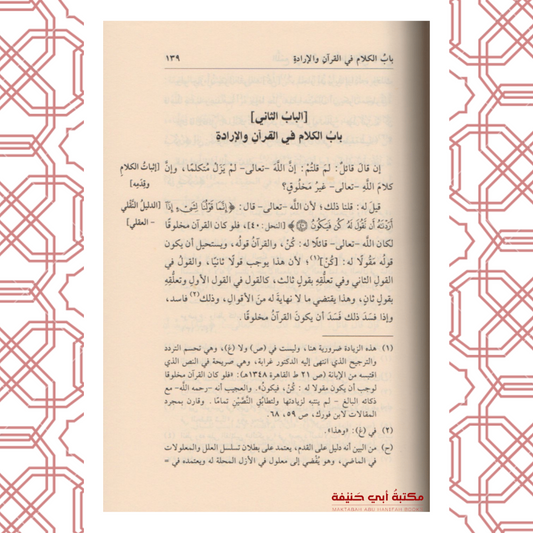 باب الكلام في القرآن والإرادة ١٣٩
[الباب الثاني]
باب الكلام في القرآن والإرادة
إن قالَ قائلٌ: لمَ قلتُمْ: إنَّ اللَّهَ -تعالى- لمْ يَزَلْ مُتكلمًا، وإنَّ [إثباتُ الكلامِ
كلامَ اللَّهِ -تعالى- غيرُ مَخلُوقٍ؟ وقِدَمِه]
قيلَ له: قلنا ذلك؛ لأن اللَّه -تعالى- قال: ﴿إِنَّمَا قَوْلُنَا لِشَيْءٍ إِذَا [الدليلُ النَّقْلي
أَرَدْنَاهُ أَن نَّقُولَ لَهُ كُن فَيَكُونُ ۝﴾ [النحل: ٤٠]، فلو كان القرآن مخلوقًا - العقلي]
لكان اللَّه -تعالى- قائلًا له: كُنْ، والقرآنُ قولُه، ويستحيل أن يكون
قولُه مَقُولًا له: [كُنْ](١)؛ لأن هذا يوجب قولًا ثانيًا، والقولُ في
القول الثاني وفي تعلُّقِه بقولٍ ثالث، كالقول في القول الأولِ وتعلُّقِه
بقولٍ ثانٍ، وهذا يقتضي ما لا نهايةَ له منَ الأقوالِ، وذلك(٢) فاسد،
وإذا فسَدَ ذلك فَسَدَ أن يكونَ القرآنُ مخلوقًا.
(١) هذه الزيادة ضرورية هنا، وليست في (ص) ولا (غ)، وهي تحسم التردد
والترجيح الذي انتهى إليه الدكتور غرابة، وهي صريحة في النص الذي
اقتبسه من الإبانة (ص ٢١ ط القاهرة ١٣٤٨هـ): «فلو كان القرآن مخلوقا
لوجب أن يكون مقولا له: كُنْ، فيكونُ». والعجيب أنه -رحمه اللَّه- مع
ذكائه البالغ - لم ينتبه لزيادتها ولتطابُقِ النَّصَّيْنِ تمامًا. وقارن بمجرد
المقالات لابن فورك، ص ٥٩، ٦٨.
(٢) في (غ): «وهذا».
(ح) من البين أنه دليل على القدم، يعتمد على بطلان تسلسل العلل والمعلولات
في الماضي، وهو يُفْضِي إلى معلول في الأزل المحلة له ويعتمده في =
مكتبة أبي حنيفة
MAKTABAH ABU HANEFAH BOOKS